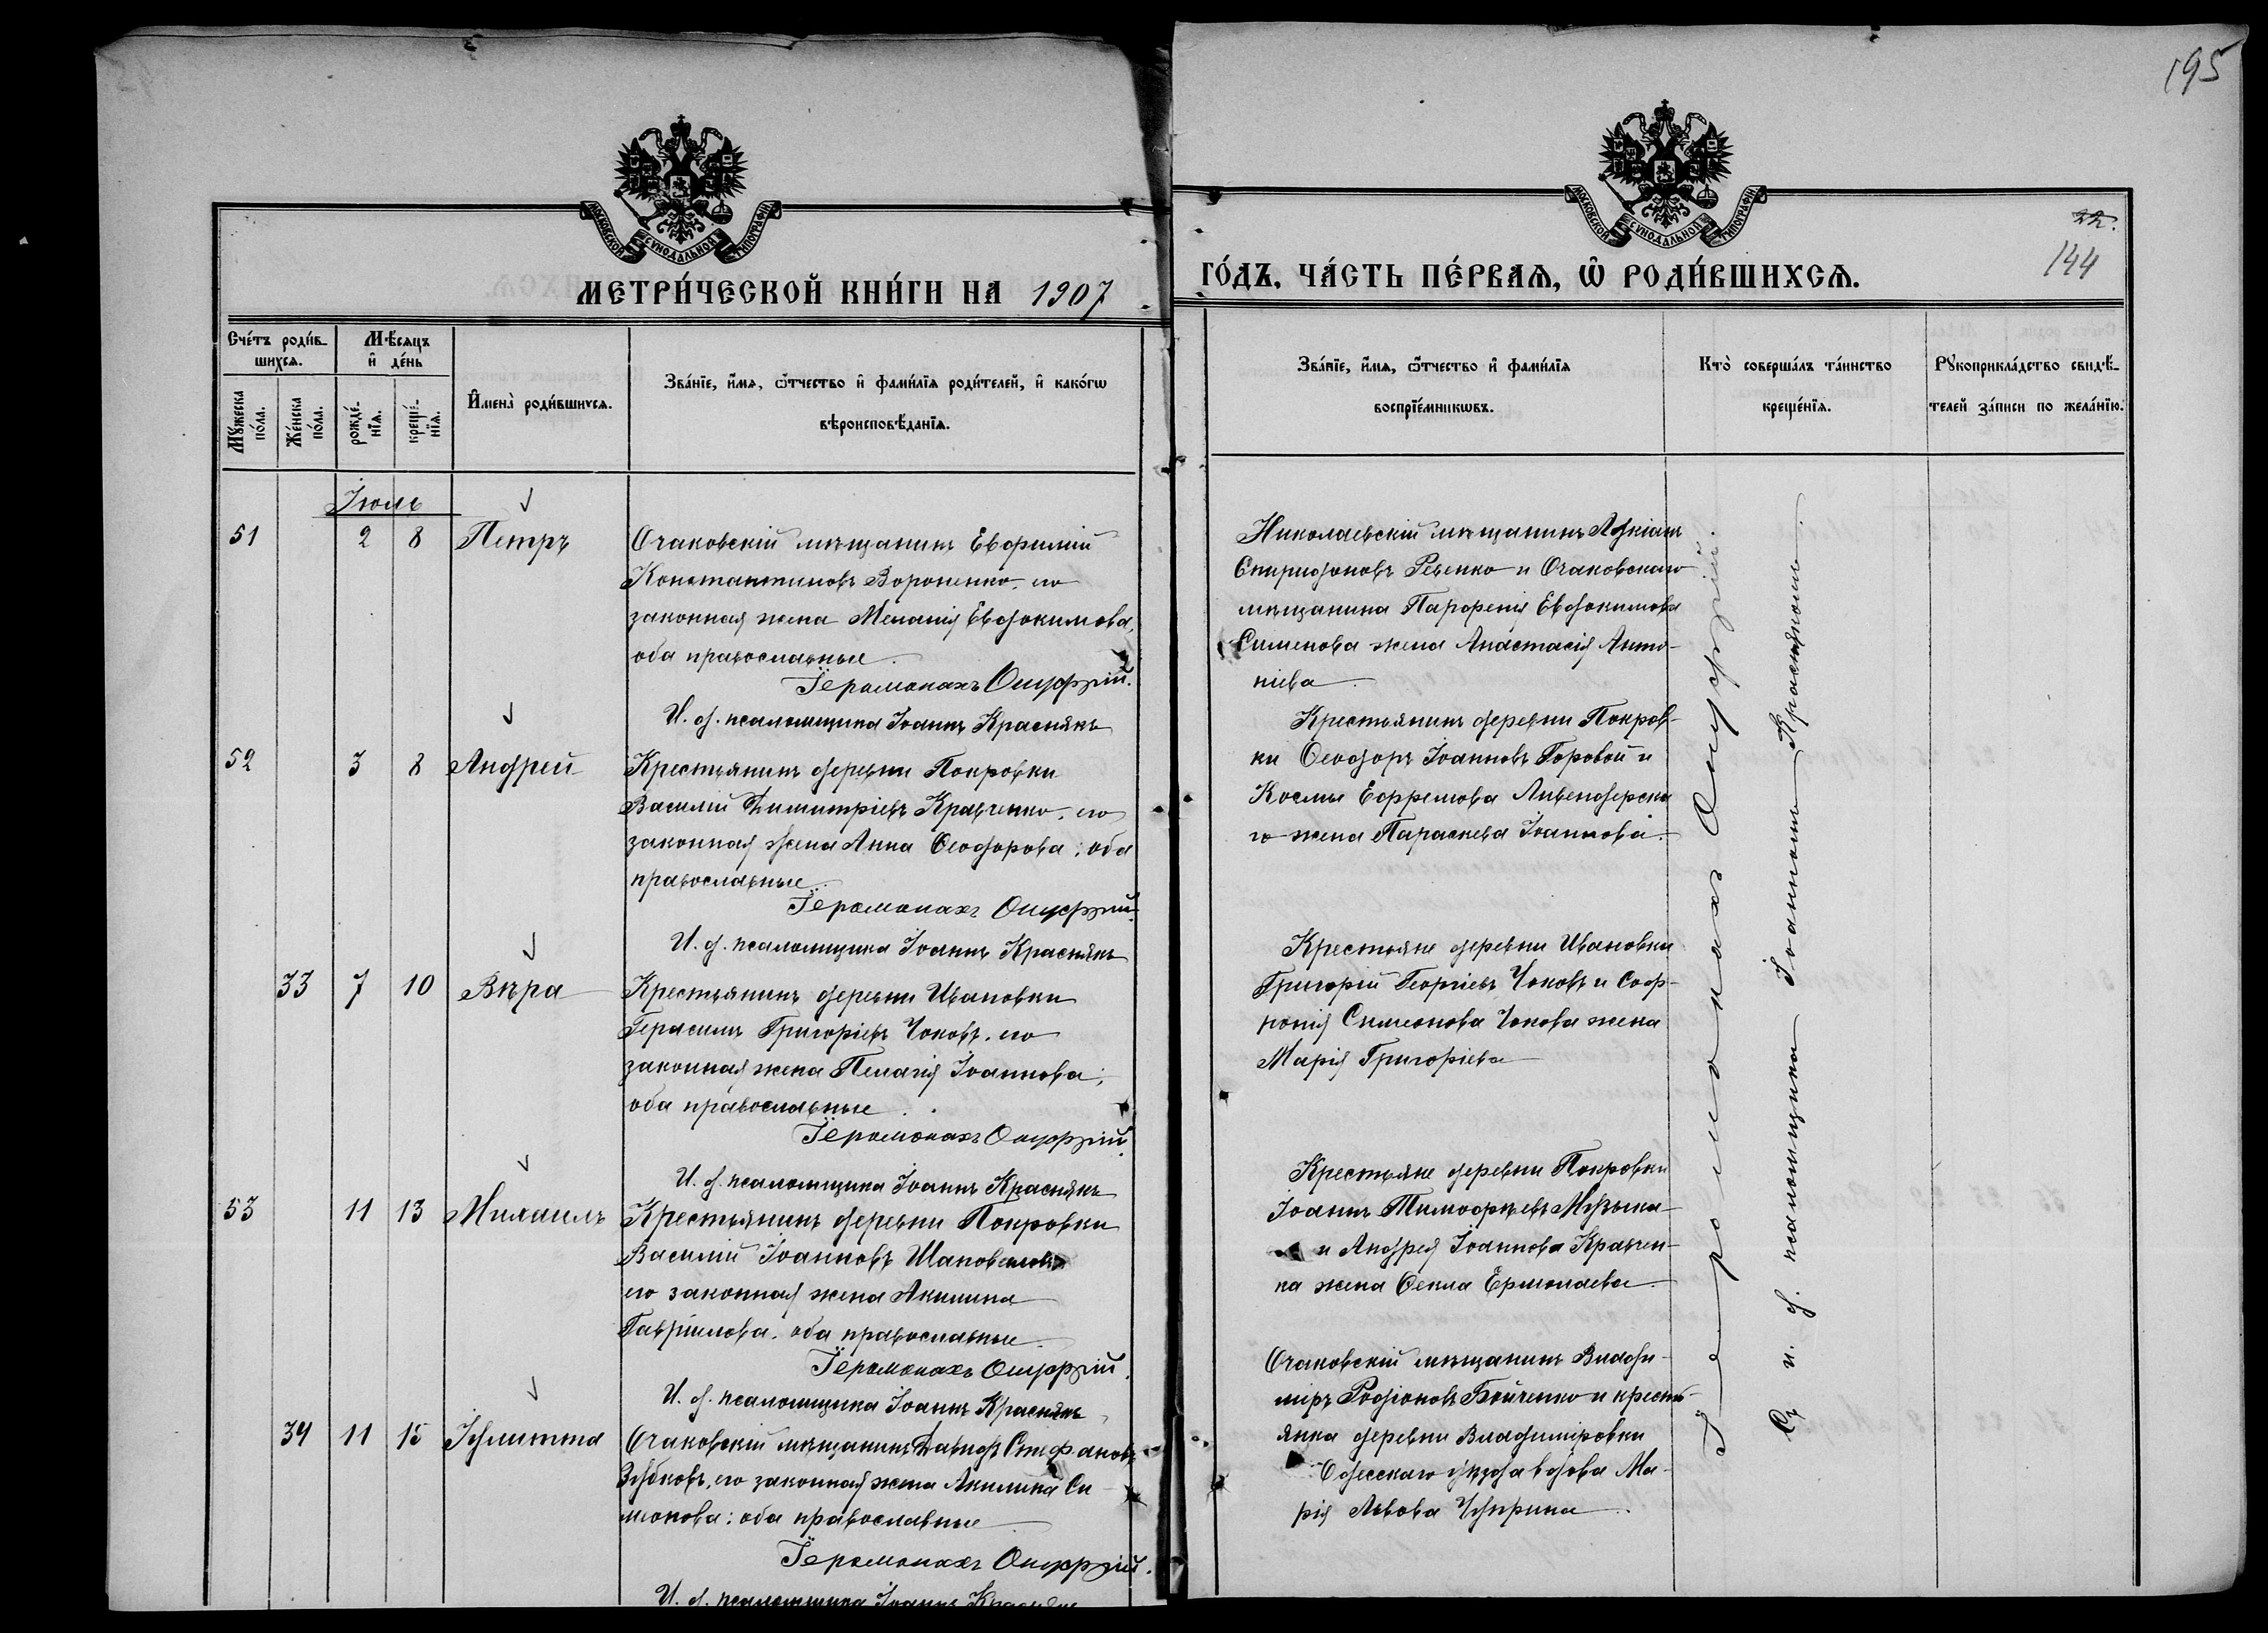 195
МОСКОВСКОЙ СѴНОДАЛЬНОЙ ТИПОГРАФІИ
МЕТРИ́ЧЕСКОЙ КНИ́ГИ НА 1907
Сче́тъ роди́в-
шихсѧ.
Мѣ́сѧцъ
и҆ де́нь
Мꙋ́жеска
по́ла.
Же́нска
по́ла.
рожде́-
нїѧ.
креще́-
нїѧ.
И҆мена̀ роди́вшихсѧ.
Зва́нїе, и҆́мѧ, ѻ҆́тчество и҆ фами́лїѧ роди́телей, и҆ како́гѡ
вѣроисповѣ́данїѧ.
Іюль
51 2 8 Петръ
Очаковскій мѣщанинъ Евфимій
Константиновъ Вороненко, его
законная жена Меланія Евдокимова,
оба православные.
Іеромонахъ Онуфрій.
И. д. псаломщика Іоаннъ Краснякъ
52 3 8 Андрей
Крестьянинъ деревни Покровки
Василій Димитріевъ Кравченко, его
законная жена Анна Ѳеодорова; оба
православные.
Іеромонахъ Онуфрій.
И. д. псаломщика Іоаннъ Краснякъ
33 7 10 Вѣра
Крестьянинъ деревни Ивановки
Герасимъ Григоріевъ Чоковъ, его
законная жена Пелагія Іоаннова;
оба православные.
Іеромонахъ Онуфрій.
И. д. псаломщика Іоаннъ Краснякъ
53 11 13 Михаилъ
Крестьянинъ деревни Покровки
Василій Іоанновъ Шаповаловъ
его законная жена Акилина
Гавріилова, оба православные.
Іеромонахъ Онуфрій.
И. д. псаломщика Іоаннъ Краснякъ
34 11 15 Іулитта
Очаковскій мѣщанинъ Давидъ Стефановъ
Зубковъ, его законная жена Акилина Си
меонова; оба православные.
Іеромонахъ Онуфрій.
И. д. псаломщика Іоаннъ Краснякъ
МОСКОВСКОЙ СѴНОДАЛЬНОЙ ТИПОГРАФІИ
22.
144
ГО́ДЪ, ЧА́СТЬ ПЕ́РВАѦ, Ѽ РОДИ́ВШИХСѦ.
Зва́нїе, и҆́мѧ, ѻ҆́тчество и҆ фами́лїѧ
воспрїе́мникѡвъ.
Кто̀ соверша́лъ та́инство
креще́нїѧ.
Рꙋкоприкла́дство свидѣ́-
телей за́писи по жела́нїю.
Николаевскій мѣщанинъ Лукіанъ
Спиридоновъ Ревенко и Очаковскаго
мѣщанина Парфенія Евдокимова
Сименова жена Анастасія Анто-
ніева
Крестьянинъ деревни Покров-
ки Ѳеодоръ Іоанновъ Горовой и
Космы Ефремова Ливендерска
го жена Параскева Іоаннова.
Крестьяне деревни Ивановки
Григорій Георгіевъ Чоковъ и Соф-
ронія Симеонова Чокова жена
Марія Григоріева
Крестьяне деревни Покровки
Іоаннъ Тимофѣевъ Музыка
и Андрея Іоаннова Кравчен-
ка жена Ѳекла Ермолаева
Очаковскій мѣщанинъ Влади-
миръ Родіоновъ Бойченко и кресть-
янка деревни Владиміровки
Одесскаго уѣзда вдова Ма-
рія Львова Чуприна
Іеромонахъ Онуфрій.
Съ и. д. псаломщика Іоанномъ Краснякомъ.